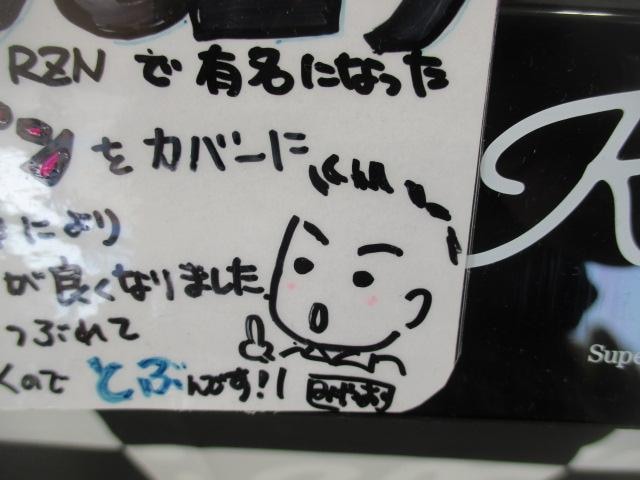 RZNで有名になった
をカバーに
により
が良くなりました
つぶれて
くので とぶんです!!
Supe